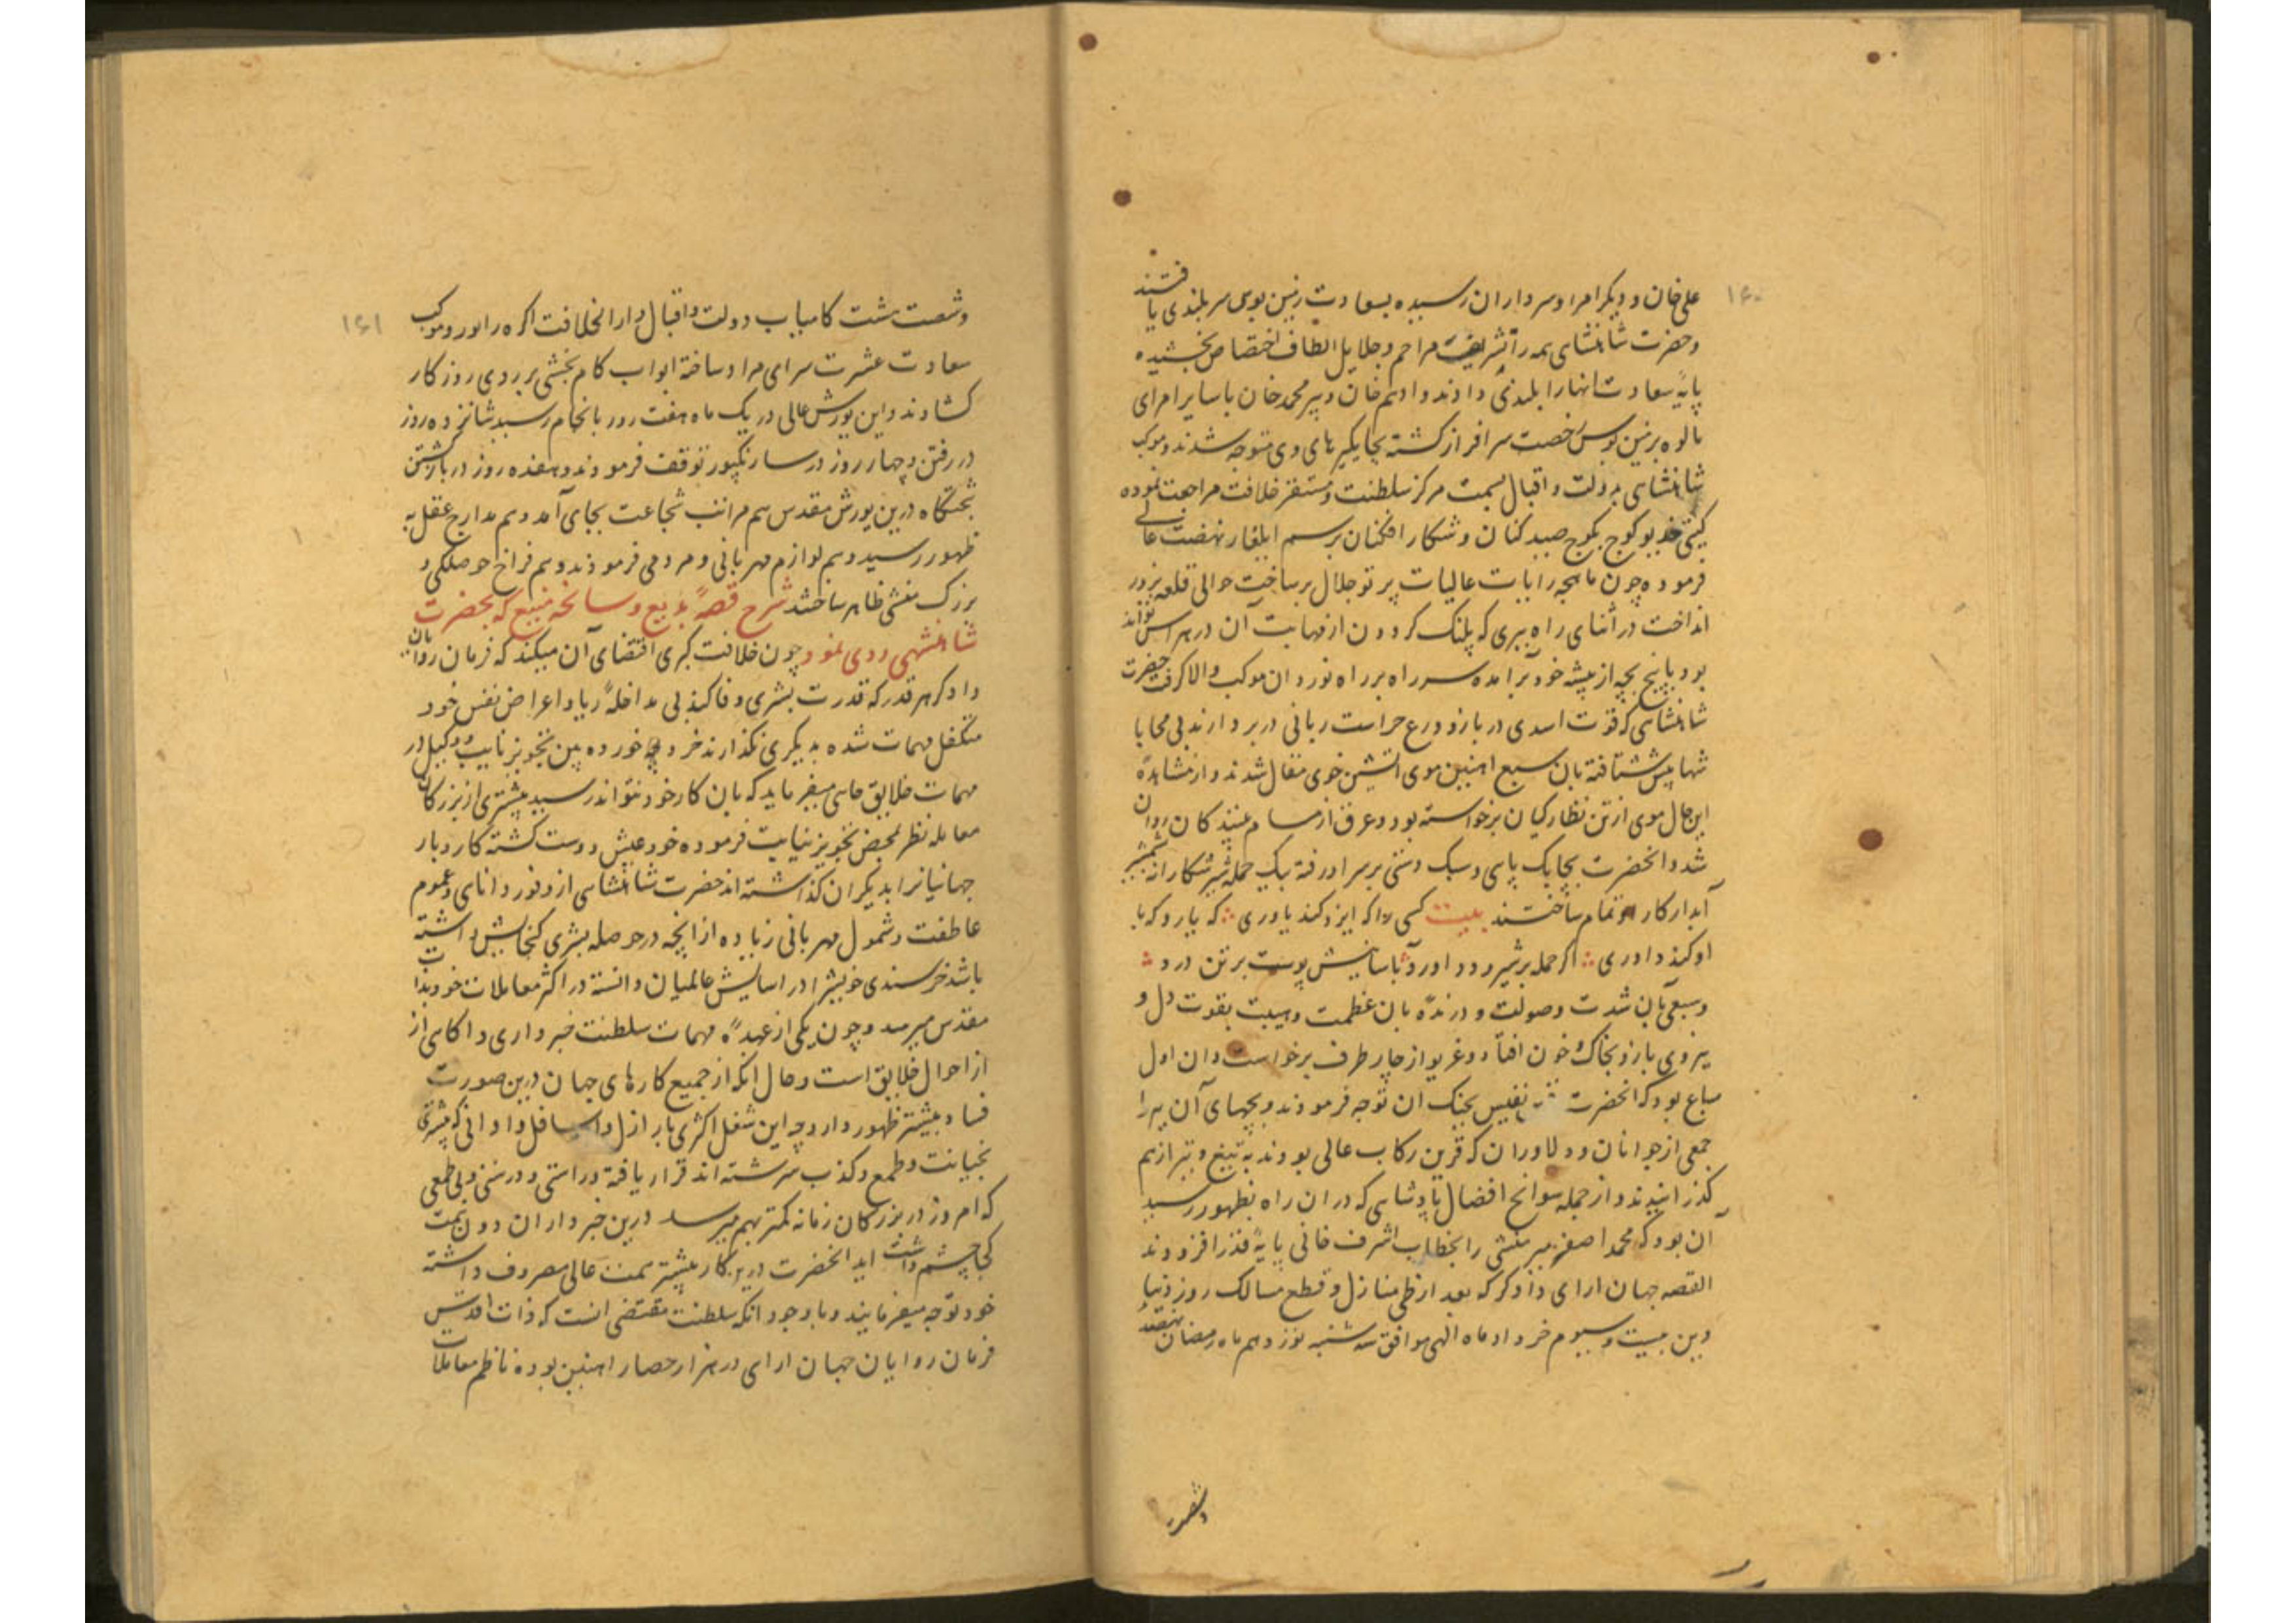 ۱۶۰
علی خان و دیکر امرا و سرداران رسیده بسعادت زمین بوس سر بلندی یافتند
و حضرت شاهنشاهی همه را بشریف مراحم و جلایل الطاف اختصاص بخشیده
پایهٔ سعادت انها را بلندی دادند و ادهم خان و پیر محمد خان با سایر امرای
مالوه بزمین بوس رخصت سرافراز کشته بجایکیرهای وی متوجه شدند و موکب
شاهنشاهی بدولت و اقبال بسمت مرکز سلطنت و مستقر خلافت مراجعت نموده
کیتی خدیو کوچ بکوچ صید کنان و شکار افکنان برسم ایلغار نهضت عالی
فرموده چون ماهچه رایات عالیات پرتو جلال بر ساخت حوالی قلعه نرور
انداخت در اثنای راه ببری که پلنک کردون از مهابت آن در هراس تواند
بود با پنج بچه از بیشه خود برآمده سر راه بر راه نوردان موکب والا کرفت حضرت
شاهنشاهی که قوت اسدی در بازو و درع حراست ربانی در بر دارند بی محابا
تنها پیش شتافته بان سبع اهنین موی اتشین خوی مقابل شدند و از مشاهدهٔ
این حال موی از تن نظارکیان برخواسته بود و عرق از مسام بینندکان روان
شد و انحضرت بچابک پای و سبک دستی بر سر او رفته بیک حمله شیر شکارانه شمشیر
آبدار کار او تمام ساختند بیت کسی را که ایزد کند یاوری که یارد که با
او کند داوری اکر حمله بر شیر و دد اورد باسانیش پوست بر تن درد
و سبعی بان شدت و صولت و درندهٔ بان عظمت و هیبت بقوت دل و
نیروی بازو بخاک و خون افتاد و غریو از چار طرف برخواست و ان اول
سباع بود که انحضرت بنفس نفیس بجنک ان توجه فرمودند و بچهای آن ببر را
جمعی از جوانان و دلاوران که قرین رکاب عالی بودند به تیغ و تیر از هم
کذرانیدند و از جمله سوانح افضال پادشاهی که در ان راه بظهور رسید
آن بود که محمد اصغر میر منشی را بخطاب اشرف خانی پایهٔ قدر افزودند
القصه جهان ارای دادکر که بعد از طی منازل و قطع مسالک روز دیبا
دین بیست و سیوم خرداد ماه الهی موافق سه شنبه نوزدهم ماه رمضان نهصد
و شصت
۱۶۱
و شصت هشت کامیاب دولت و اقبال دار الخلافت اکره را مورد موکب
سعادت عشرت سرای مراد ساخته ابواب کام بخشی بر روی روزکار
کشادند و این یورش عالی در یک ماه هفت روز بانجام رسید شانزده روز
در رفتن و چهار روز در سارنکپور توقف فرمودند و هفده روز در بازکشتن
بتختکاه درین یورش مقدس هم مراتب شجاعت بجای آمد و هم مدارج عقل به
ظهور رسید و هم لوازم مهربانی و مردمی فرمودند و هم فراخ حوصلکی و
بزرک منشی ظاهر ساختند شرح قصهٔ بدیع و سانحه منیع که بحضرت
شاهنشهی روی نمود چون خلافت کبری اقتضای آن میکند که فرمان روایان
دادکر هر قدر که قدرت بشری وفا کند بی مداخلهٔ ریا و اعراض نفس خود
متکفل مهمات شده بدیکری نکذارند خرد خورده بین تجویز نایب و وکیل در
مهمات خلایق جای میفرماید که بان کار خود نتواند رسید بیشتری از بزرکان
معامله نظر بمحض تجویز نیابت فرموده خود عیش دوست کشته کار و بار
جهانیانرا بدیکران کذاشته اند حضرت شاهنشاهی از وفور دانای و عموم
عاطفت و شمول مهربانی زیاده از انچه در حوصله بشری کنجایش داشته
باشد خرسندی خویشرا در اسایش عالمیان دانسته در اکثر معاملات خود بذات
مقدس میرسد و چون یکی از عمدهٔ مهمات سلطنت خبرداری و اکاهی از
از احوال خلایق است و حال انکه از جمیع کارهای جهان درین صورت
فساد بیشتر ظهور دارد چه این شغل اکثری بار ازل و اسافل و ادانی که بیشتری
بخیانت و طمع و کذب سرشته اند قرار یافته و راستی و درستی و بی طمعی
که امروز در بزرکان زمانه کمتر بهم میرسد درین خبرداران دون همت
کجا چشم داشت اید انحضرت درین کار بیشتر همت عالی مصروف داشته
خود توجه میفرمایند و با وجود انکه سلطنت مقتضی انست که ذات اقدس
فرمان روایان جهان ارای در هزار حصار اهنین بوده ناظم معاملات